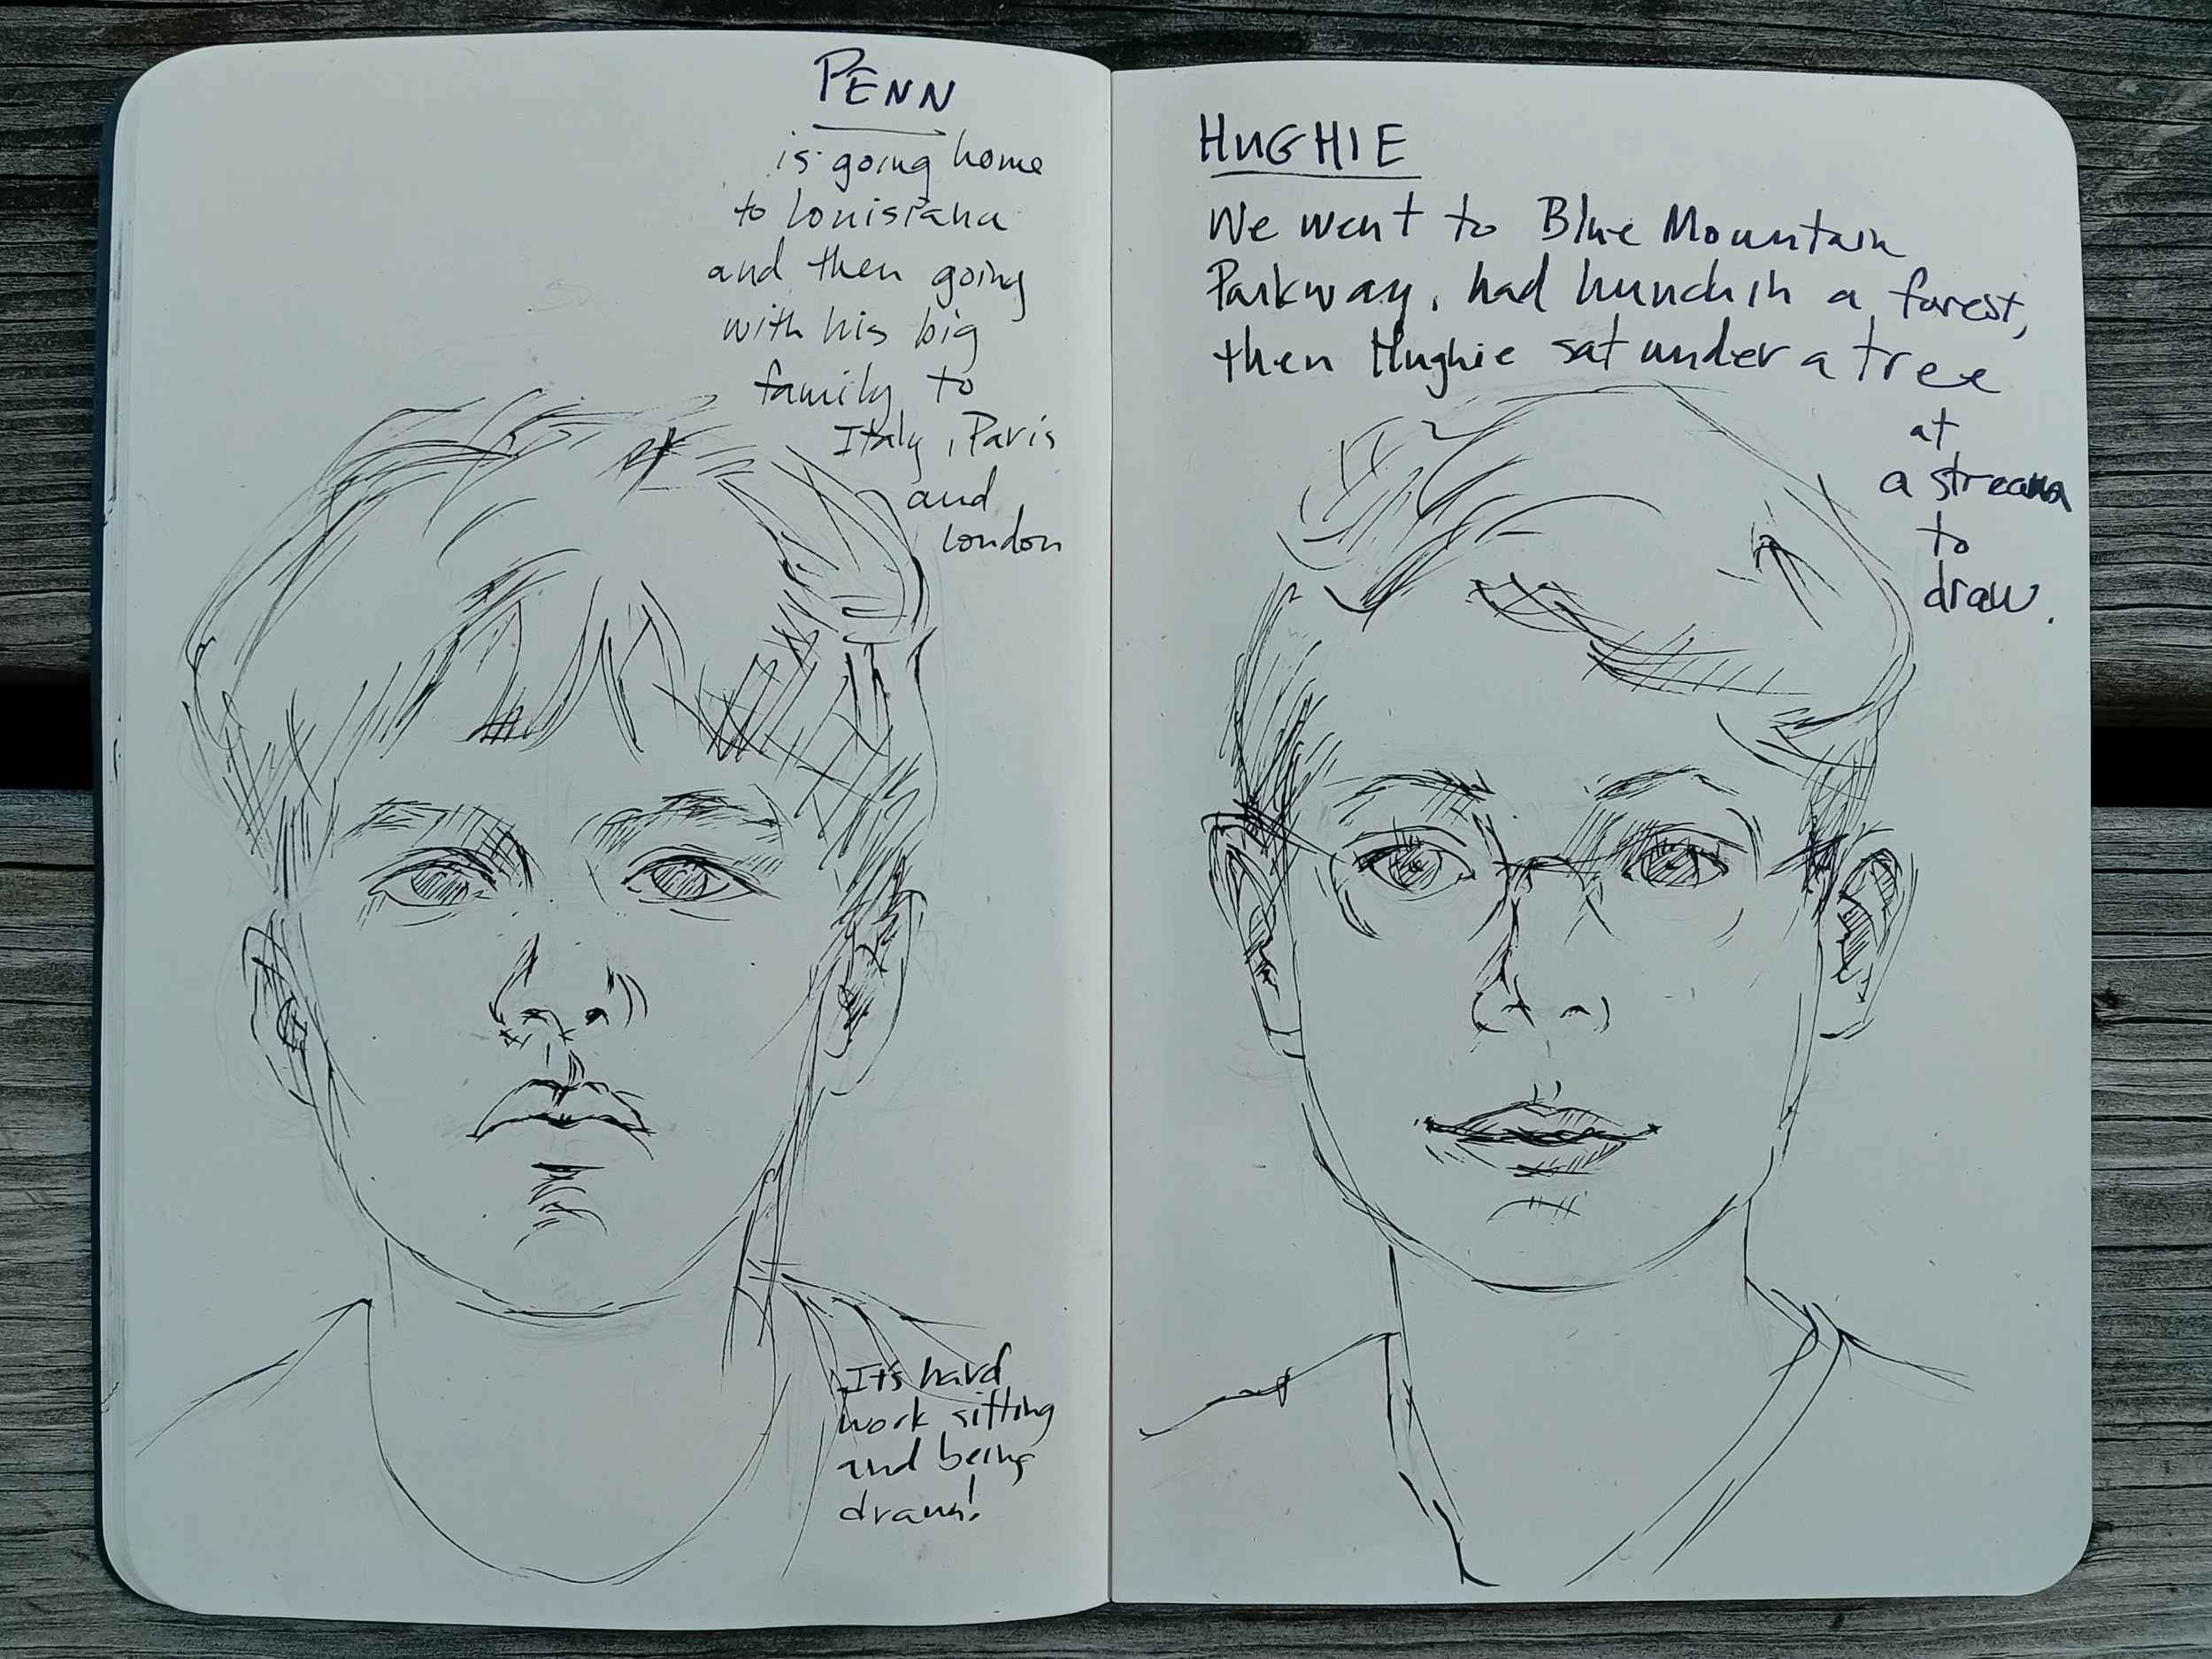 PENN
is going home
to Louisiana
and then going
with his big
family to
Italy, Paris
and
London
It's hard
work sitting
and being
drawn!
HUGHIE
We went to Blue Mountain
Parkway, had lunch in a forest,
then Hughie sat under a tree
at
a stream
to
draw.